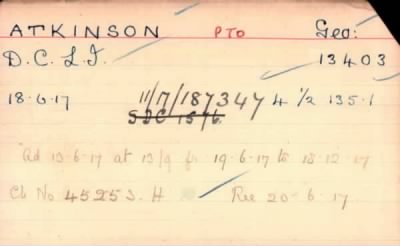 ATKINSON PTO Geo:
D. C. L. I. 13403
18-6-17 11/7/187347 4 1/2 135.1
SDC 1576
ad 13-6-17 at 13/9 fr 19-6-17 to 18-12-17
Cb No 45253. H Rec 20-6-17.